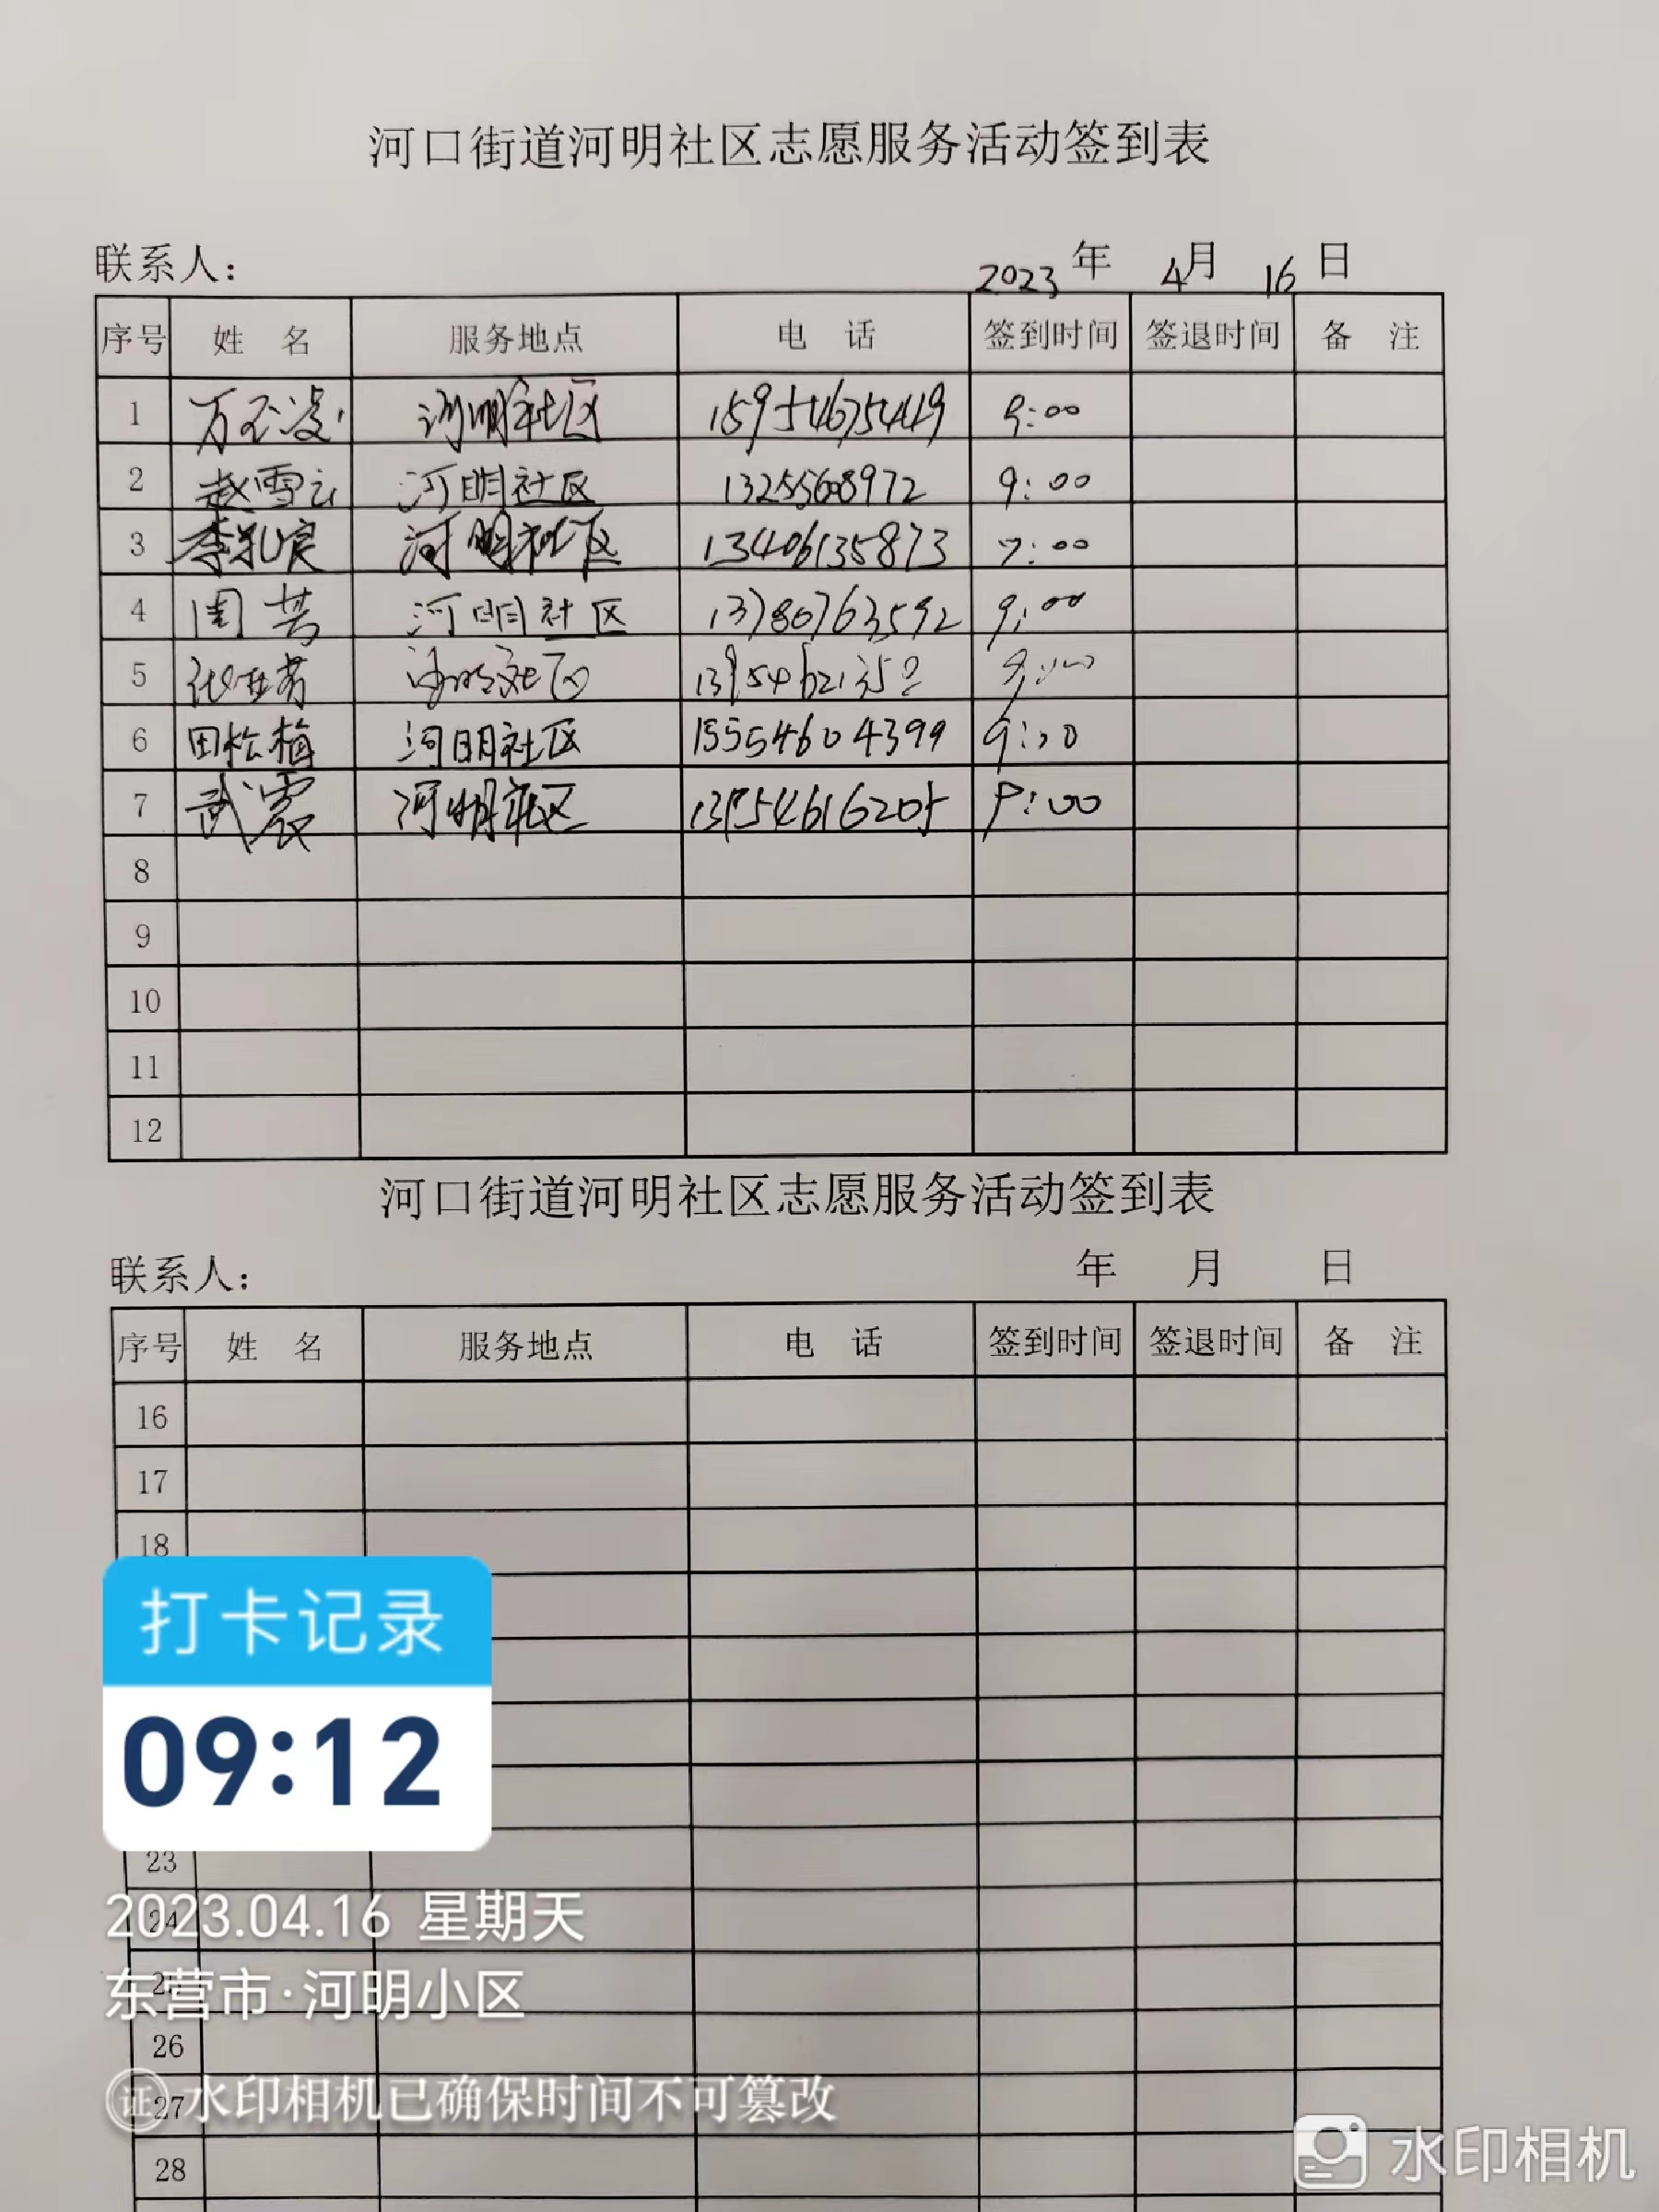 河口街道河明社区志愿服务活动签到表
联系人： 2023 年 4月 16 日
序号 姓 名 服务地点 电 话 签到时间 签退时间 备 注
1 河明社区 15954675449 9:00
2 赵雪云 河明社区 13255608972 9:00
3 河明社区 13406135873 9:00
4 周芳 河明社区 13780763592 9:00
5 河明社区
6 田松梅 河明社区 15554604399 9:00
7 武震 河明社区 13954616205 9:00
8
9
10
11
12
河口街道河明社区志愿服务活动签到表
联系人： 年 月 日
序号 姓 名 服务地点 电 话 签到时间 签退时间 备 注
16
17
18
打卡记录
09:12
23
24
2023.04.16 星期天
东营市·河明小区
26
证 水印相机已确保时间不可篡改
27
28
水印相机